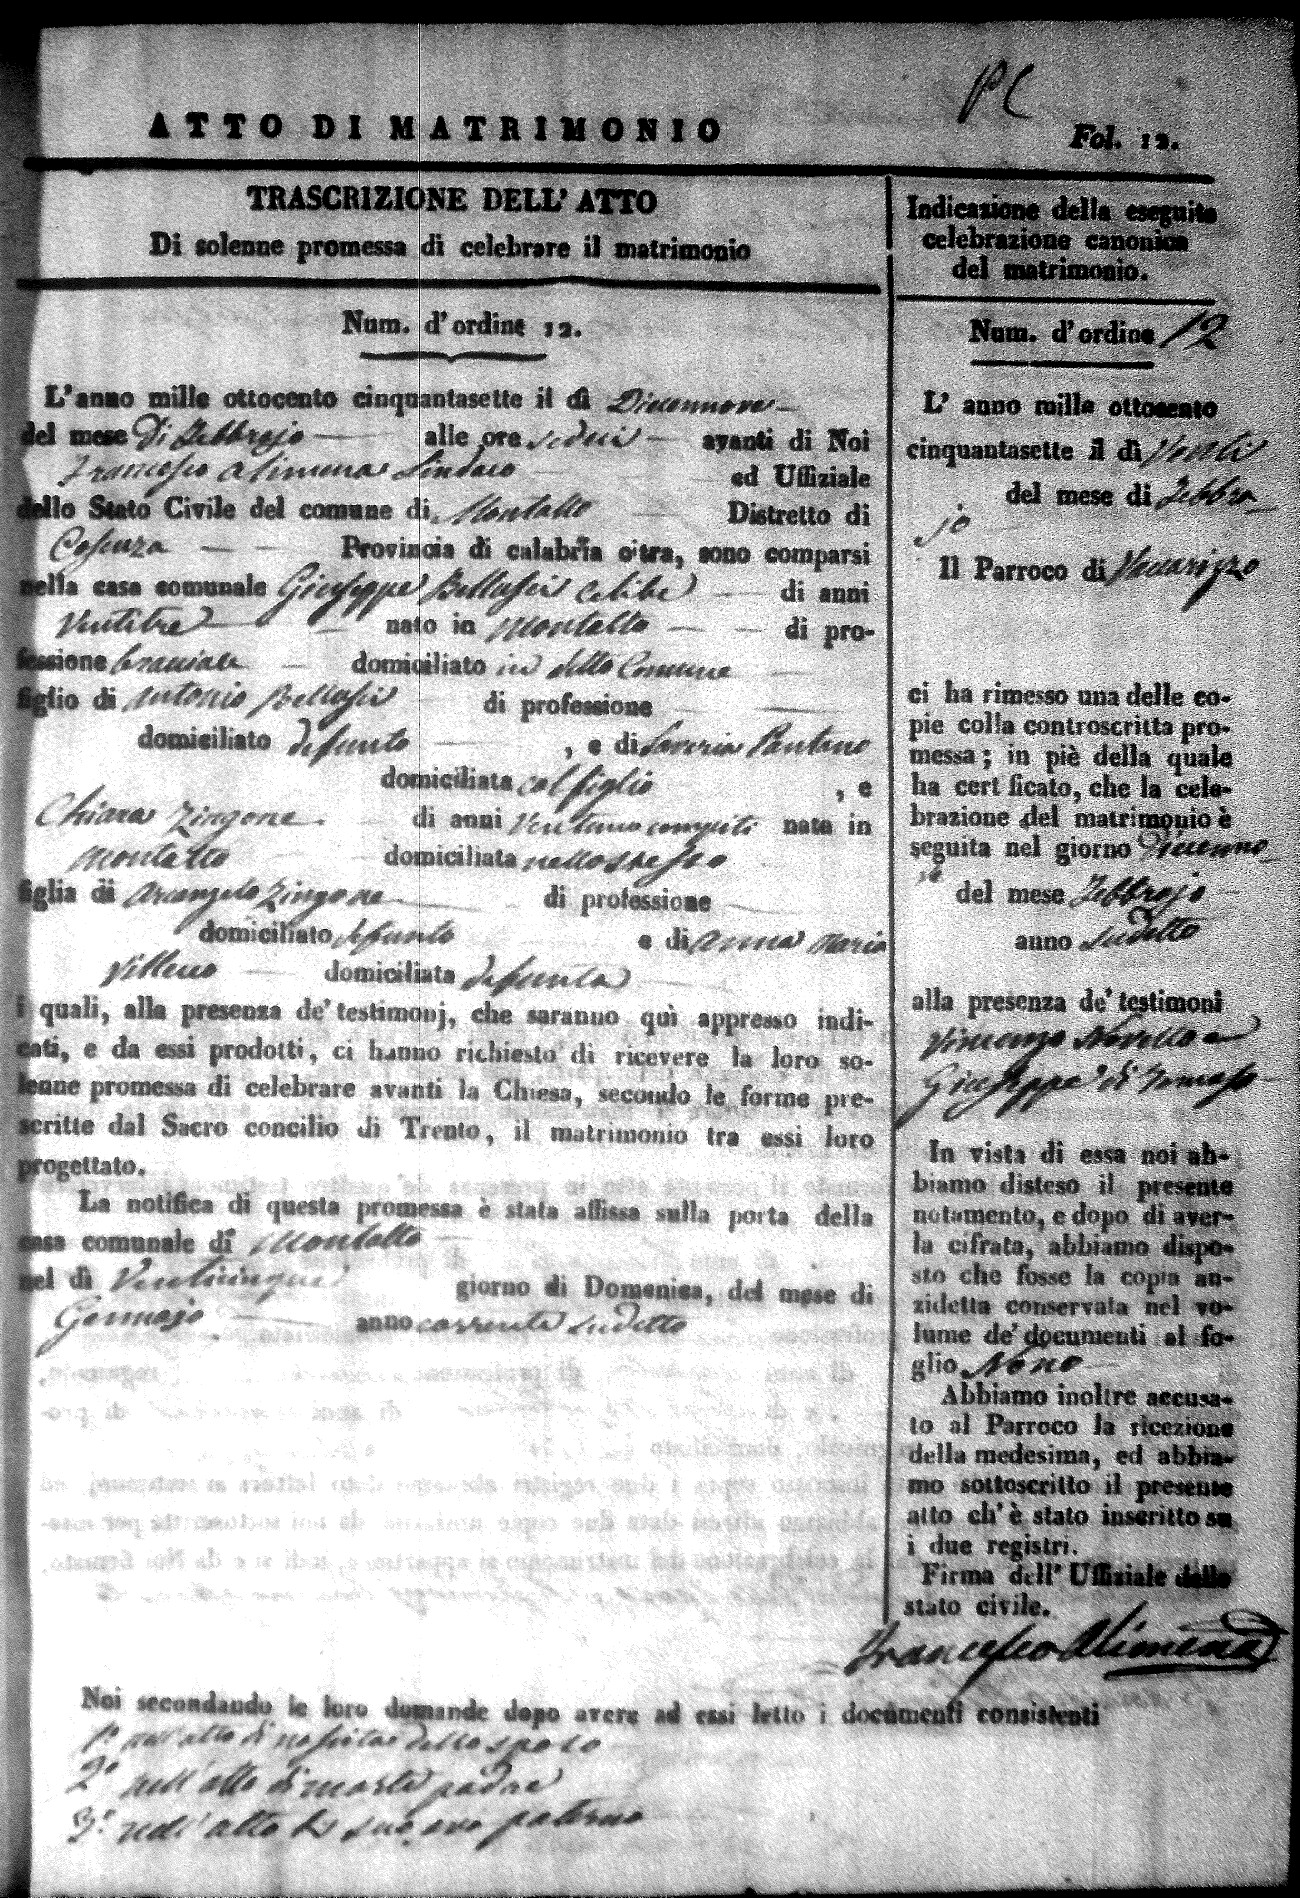 PC
ATTO DI MATRIMONIO
Fol. 12.
TRASCRIZIONE DELL' ATTO
Di solenne promessa di celebrare il matrimonio
Num. d'ordine 12.
L'anno mille ottocento cinquantasette il dì Diecennove
del mese di Febbrajo alle ore sedici avanti di Noi
Francesco Alimena Sindaco ed Uffiziale
dello Stato Civile del comune di Montalto Distretto di
Cosenza Provincia di calabria citra, sono comparsi
nella casa comunale Giuseppe Bellasci celibe di anni
Ventitre nato in Montalto di pro-
fessione bracciale domiciliato in detto Comune
figlio di Antonio Bellasci di professione
domiciliato defunto , e di Saveria Pantano
domiciliata col figlio , e
Chiara Zingone di anni Ventuno compiti nata in
Montalto domiciliata nello stesso
figlia di Arcangelo Zingone di professione
domiciliato defunto e di Anna Maria
domiciliata defunta
i quali, alla presenza de' testimonj, che saranno quì appresso indi-
cati, e da essi prodotti, ci hanno richiesto di ricevere la loro so-
lenne promessa di celebrare avanti la Chiesa, secondo le forme pre-
scritte dal Sacro concilio di Trento, il matrimonio tra essi loro
progettato.
La notifica di questa promessa è stata affissa sulla porta della
casa comunale di Montalto
nel dì Venticinque giorno di Domenica, del mese di
Gennajo anno corrente sudetto
Indicazione della eseguita
celebrazione canonica
del matrimonio.
Num. d'ordine 12
L' anno mille ottocento
cinquantasette il dì Venti
del mese di Febbra
jo
Il Parroco di Vaccarizzo
ci ha rimesso una delle co-
pie colla controscritta pro-
messa; in piè della quale
ha cert ficato, che la cele-
brazione del matrimonio è
seguita nel giorno Diecenno
ve
del mese Febbrajo
anno sudetto
alla presenza de' testimoni
Vincenzo Novello e
Giuseppe di Tomaso
In vista di essa noi ab-
biamo disteso il presente
notamento, e dopo di aver-
la cifrata, abbiamo dispo-
sto che fosse la copia an-
zidetta conservata nel vo-
lume de' documenti al fo-
glio Nono
Abbiamo inoltre accusa-
to al Parroco la ricezione
della medesima, ed abbia-
mo sottoscritto il presente
atto ch' è stato inscritto su
i due registri.
Firma dell' Uffiziale dello
stato civile.
Francesco Alimena
Noi secondando le loro domande dopo avere ad essi letto i documenti consistenti
1° nell'atto di nascita dello sposo
2° nell'atto di morte padre
3° nell'atto avo paterno